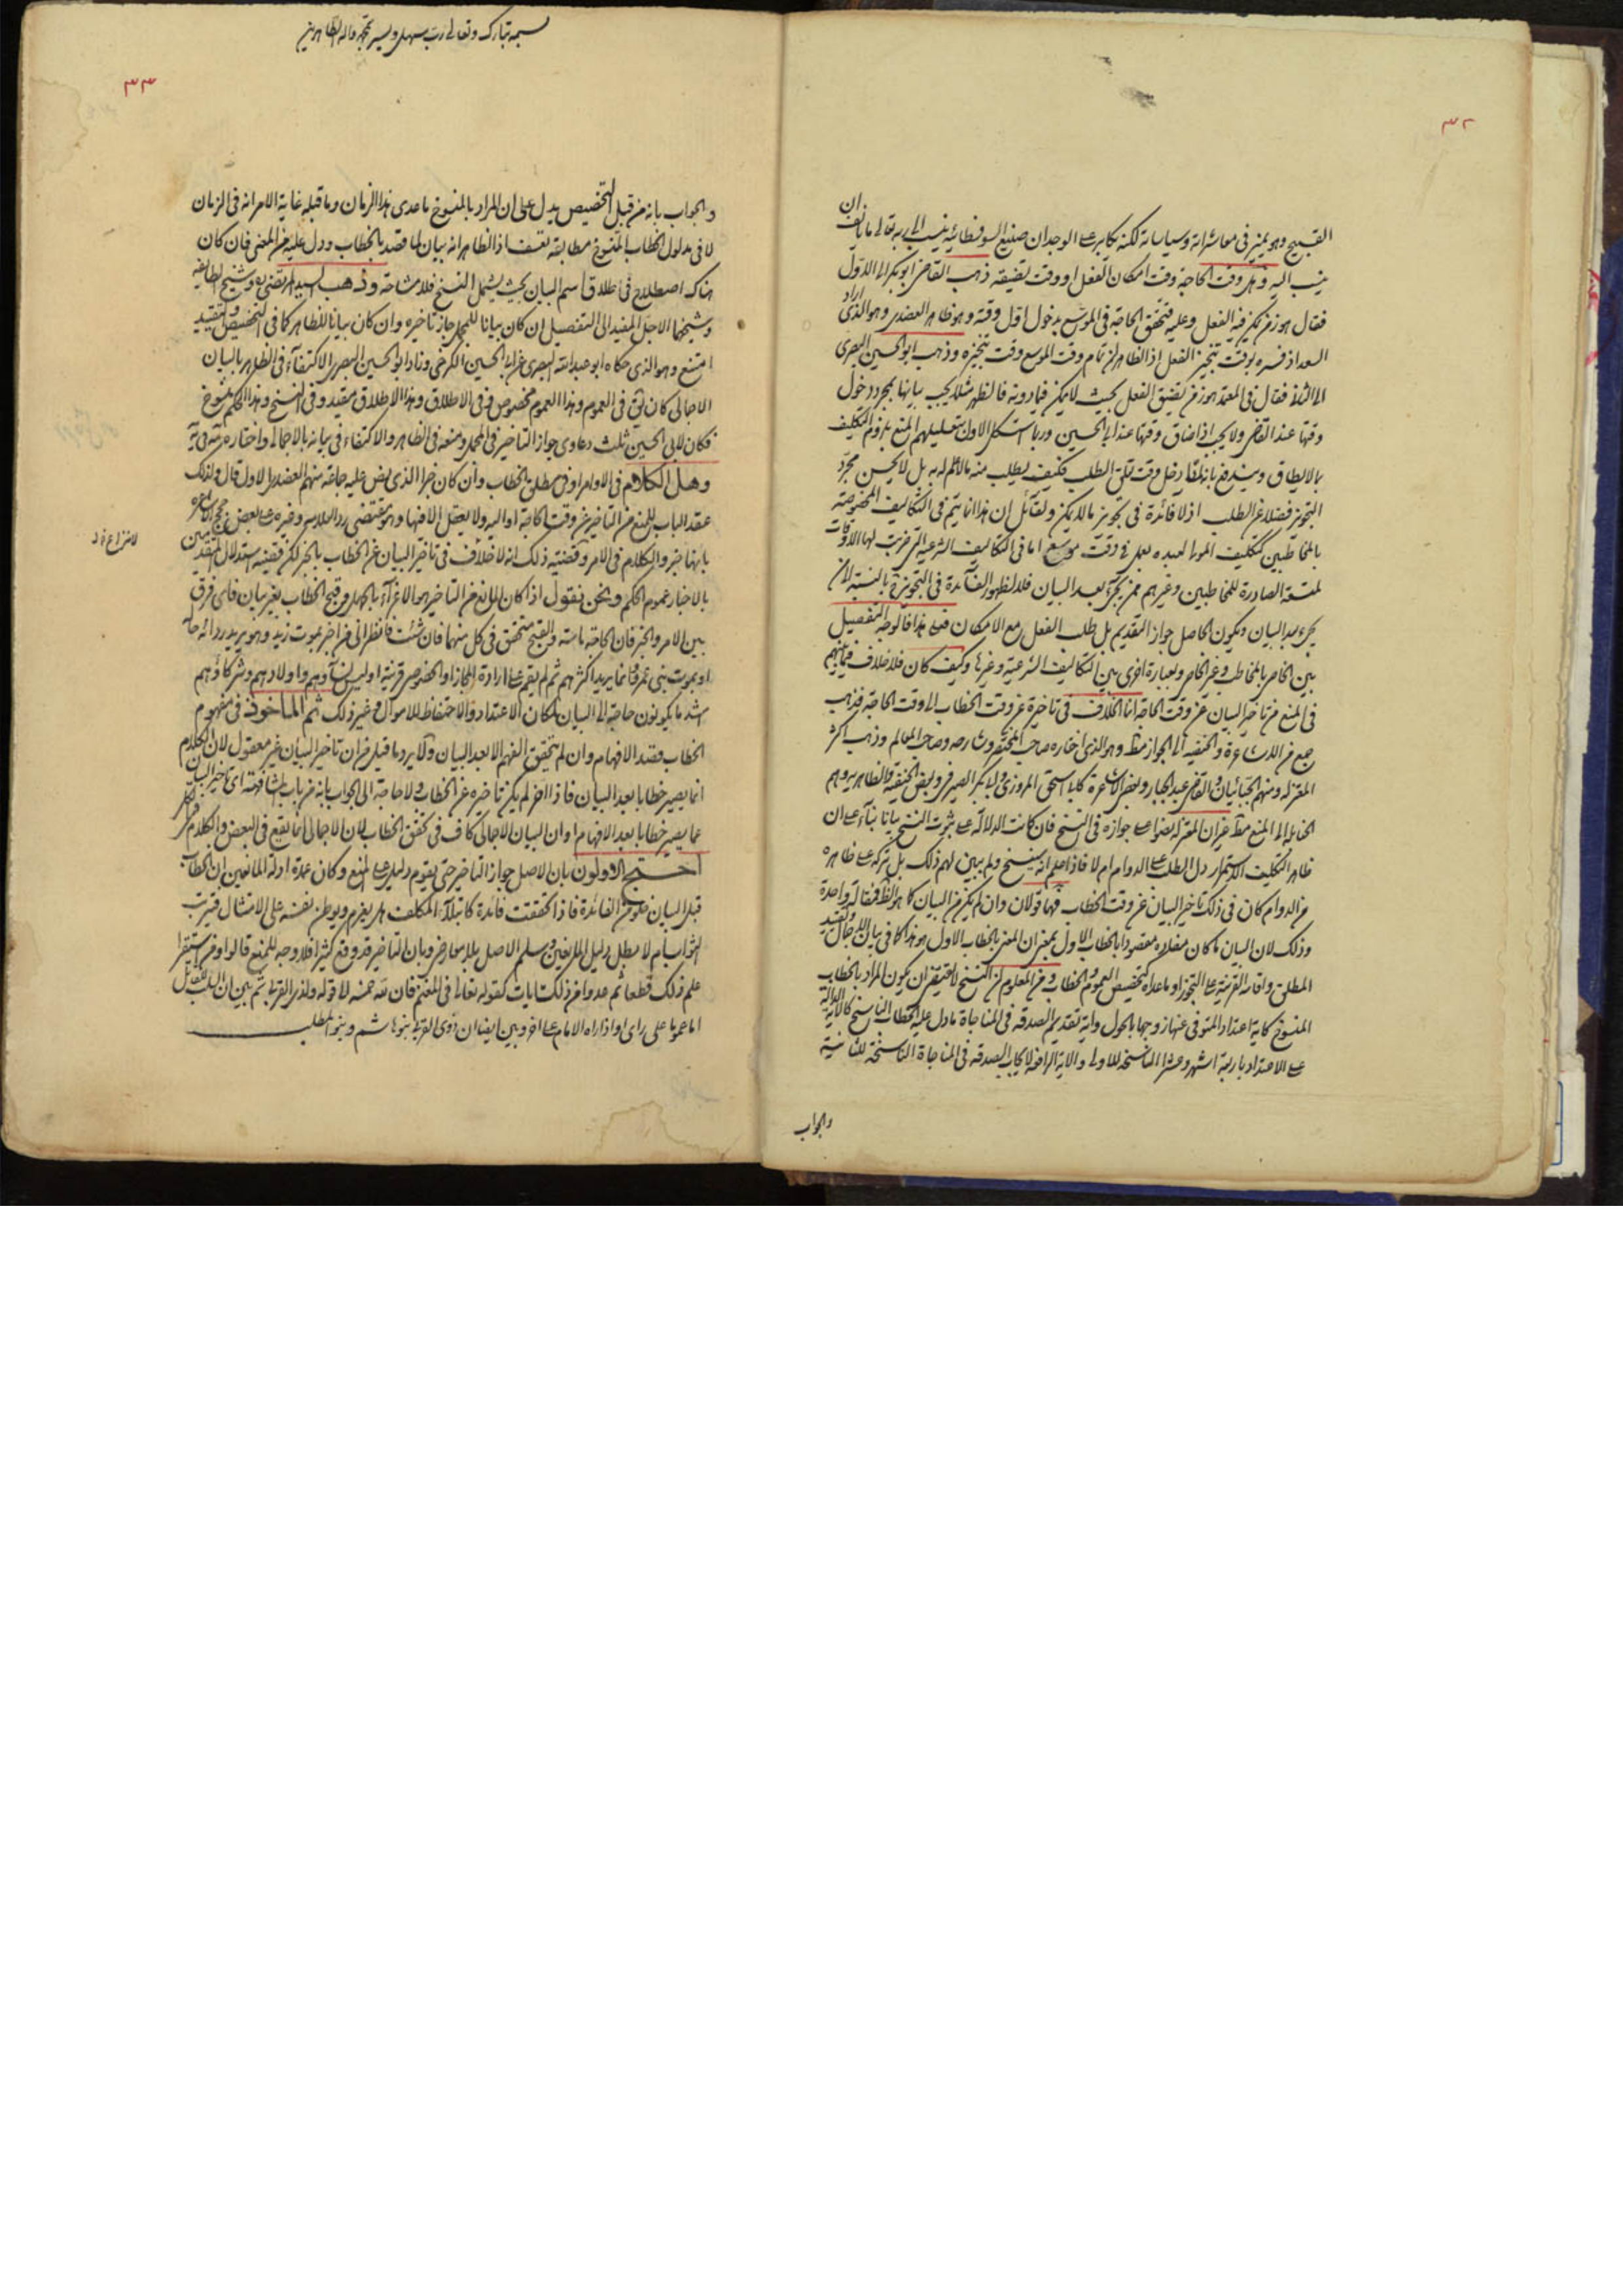 ٣٢
القبيح وهو يميز في معاشراته وسياساته لكنه يكابر على الوجدان صنيع السوفسطائيه ينسب اليه تعالى ما يأنف ان
ينسب اليه وهل وقت الحاجة وقت امكان الفعل او وقت تضيقه ذهب القاضي ابو بكر الى الاول
فقال هو زمن يمكن فيه الفعل وعليه فتحقق الحاجة في الموسع بدخول اول وقته وهو ظاهر العضدي وهو الذي اراد
السعد اذ فسره بوقت تنجيز الفعل اذ الظاهر ان تمام وقت الموسع وقت تنجيزه وذهب ابو الحسين البصري
الى الثاني فقال في المعتمد هو زمن تضيق الفعل بحيث لا يمكن فيما دونه فالظهر مثلا يجب بيانها بمجرد دخول
وقتها عند القاضي ولا يجب اذا ضاق وقتها عند ابي الحسين وربما استشكل الاول بتعليلهم المنع بلزوم التكليف
بما لا يطاق ويندفع بانه اذا دخل وقت تعلق الطلب فكيف يطلب منه ما لا علم له به بل لا يحسن مجرد
التجويز فضلا عن الطلب اذ لا فائدة في تجويز ما لا يمكن ولقائل ان هذا انما يتم في التكاليف المخصوصة
بالمخاطبين كتكليف المولى لعبده بعمل في وقت موسع اما في التكاليف الشرعية التي ضربت لها الاوقات
المتسعة الصادرة للمخاطبين وغيرهم ممن يجيء بعد البيان فلا لظهور الفائدة في التجويز بالنسبة الى من
يجيء بعد البيان ويكون الحاصل جواز التقديم بل طلب الفعل مع الامكان فعلى هذا فالوجه التفصيل
بين الخاص بالمخاطب وغير الخاص وبعبارة اخرى بين التكاليف الشرعية وغيرها وكيف كان فلا خلاف فيما بينهم
في المنع من تاخير البيان عن وقت الحاجة انما الخلاف في تاخيره عن وقت الخطاب الى وقت الحاجة فذهب
جمع من الاشاعرة والحنفيه الى الجواز مطلقا وهو الذي اختاره صاحب المختصر وصاحب المعالم وذهب اكثر
المعتزله ومنهم الجبائيان والقاضي عبد الجبار وبعض الاشاعرة كابي اسحق المروزي وابي بكر الصيرفي وبعض الحنفيه والظاهريه وهم
الحنابله الى المنع مطلقا غير ان المعتزله نصوا على جوازه في النسخ فان كانت الدلالة على ثبوت النسخ بيانا بناء على ان
ظاهر التكليف الاستمرار دل الطلب على الدوام ام لا فاذا علم انه ينسخ ولم يبين لهم ذلك بل تركه على ظاهره
من الدوام كان في ذلك تاخير البيان عن وقت الخطاب فهما قولان وان لم يكن من البيان كما هو الظاهر فمقالة واحدة
وذلك لان البيان ما كان مفاده مقصودا بالخطاب الاول بمعنى ان المعنى بالخطاب الاول هو هذا كما في بيان الاجمال وتقييد
المطلق واقامة القرينة على التجوز او ما عداه كتخصيص العموم والخطاب ومن المعلوم ان النسخ لا يقتضي ان يكون المراد بالخطاب
المنسوخ كاية اعتداد المتوفى عنها زوجها بالحول واية تقديم الصدقه في المناجاة ما دل عليه الخطاب الناسخ كالاية الدالة
على الاعتداد باربعة اشهر وعشرا الناسخه للاولى والاية الرافعة لايجاب الصدقه في المناجاة الناسخة للثانية
والجواب
بسمه تبارك وتعالى رب سهل ويسر بمحمد واله الطاهرين
٣٣
والجواب بانه من قبل التخصيص يدل على ان المراد بالمنسوخ ما عدى هذا الزمان وما قبله غاية الامر انه في الزمان
لا في مدلول الخطاب المنسوخ مطابقة تعسف اذ الظاهر انه بيان لما قصد بالخطاب ودل عليه من المعنى فان كان
هناك اصطلاح في اطلاق اسم البيان بحيث يشمل النسخ فلا مشاحة وذهب السيد المرتضى وشيخ الطايفه
وشيخها الاجل المفيد الى التفصيل ان كان بيانا للمجمل جاز تاخيره وان كان بيانا للظاهر كما في التخصيص والتقييد
امتنع وهو الذي حكاه ابو عبد الله البصري عن ابي الحسين الكرخي وزاد ابو الحسين البصري الاكتفاء في الظاهر بالبيان
الاجمالي كان يق في العموم وهذا العموم مخصوص وفي الاطلاق وهذا الاطلاق مقيد وفي النسخ وهذا الحكم منسوخ
فكان لابي الحسين ثلث دعاوى جواز التاخير في المجمل ومنعه في الظاهر والاكتفاء في بيانه بالاجمالي واختاره
وهل الكلام في الاوامر او في مطلق الخطاب وان كان خبرا الذي نص عليه جماعة منهم العضدي الاول قال ولذلك
عقد الباب للمنع من التاخير عن وقت الحاجة او اليه ولا يعقل الا فيها وهو مقتضى رد العلامه وغيره على بعض حجج الاشاعره
بانها خبر والكلام في الامر وقضية ذلك انه لا خلاف في تاخير البيان عن الخطاب بالخبر لكن قضية استدلال المتقدمين
بالاخبار عموم الحكم ونحن نقول اذا كان المانع من التاخير هو الاغراء بالجهل وقبح الخطاب بغير بيان فاي فرق
بين الامر والخبر فان الحاجة ماسة والقبح متحقق في كل منهما فان شئت فانظر الى من اخبر بموت زيد وهو يريد ردائة حاله
او بموت بني عمرو وانما يريد اكثرهم ثم لم يقم على ارادة المجاز او الخصوص قرينة اوليس نساؤهم واولادهم وشركاؤهم
اشد ما يكونون حاجة الى البيان لمكان الاعتداد والاحتفاظ للاموال وغير ذلك ثم الماخوذ في مفهوم
الخطاب قصد الافهام وان لم يتحقق الفهم الا بعد البيان ولا يرد ما قيل من ان تاخير البيان غير معقول لان الكلام
انما يصير خطابا بعد البيان فاذا اخر لم يكن تاخيره عن الخطاب ولا حاجة الى الجواب بانه من باب المشافهة اي تاخير البيان
عما يصير خطابا بعد الافهام او ان البيان الاجمالي كاف في تحقق الخطاب لان الاجمالي انما يقع في البعض والكلام في الكل
احتج الاولون بان الاصل جواز التاخير حتى يقوم دليل على المنع وكان عمدة ادلة المانعين ان الخطاب
قبل البيان خلو من الفائدة فاذا تحققت فائدة كابتلاء المكلف هل يعزم ويوطن نفسه على الامتثال فيترتب
الثواب ام لا بطل دليل المانعين وسلم الاصل بلا معارض وبان التاخير قد وقع كثيرا فلا وجه للمنع قالوا ومن استقرا
علم ذلك قطعا ثم عدوا من ذلك ايات كقوله تعالى في المغنم فان لله خمسه الى قوله ولذي القربى ثم بين ان السلب للقاتل
اما عموما على راي او اذا راه الامام على اخر وبين ايضا ان ذوي القربى بنو هاشم وبنو المطلب